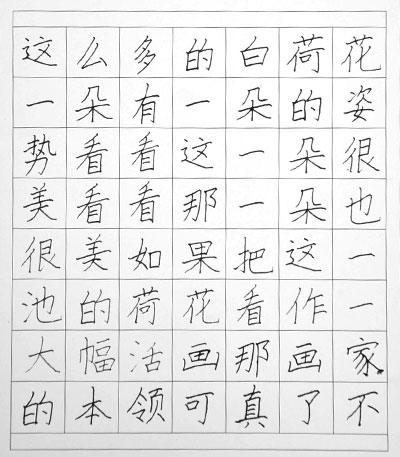 这么多的白荷花
一朵有一朵的姿
势看看这一朵很
美看看那一朵也
很姜如果把这一
池的荷花看作一
大幅活画那画家
的本领可真了不